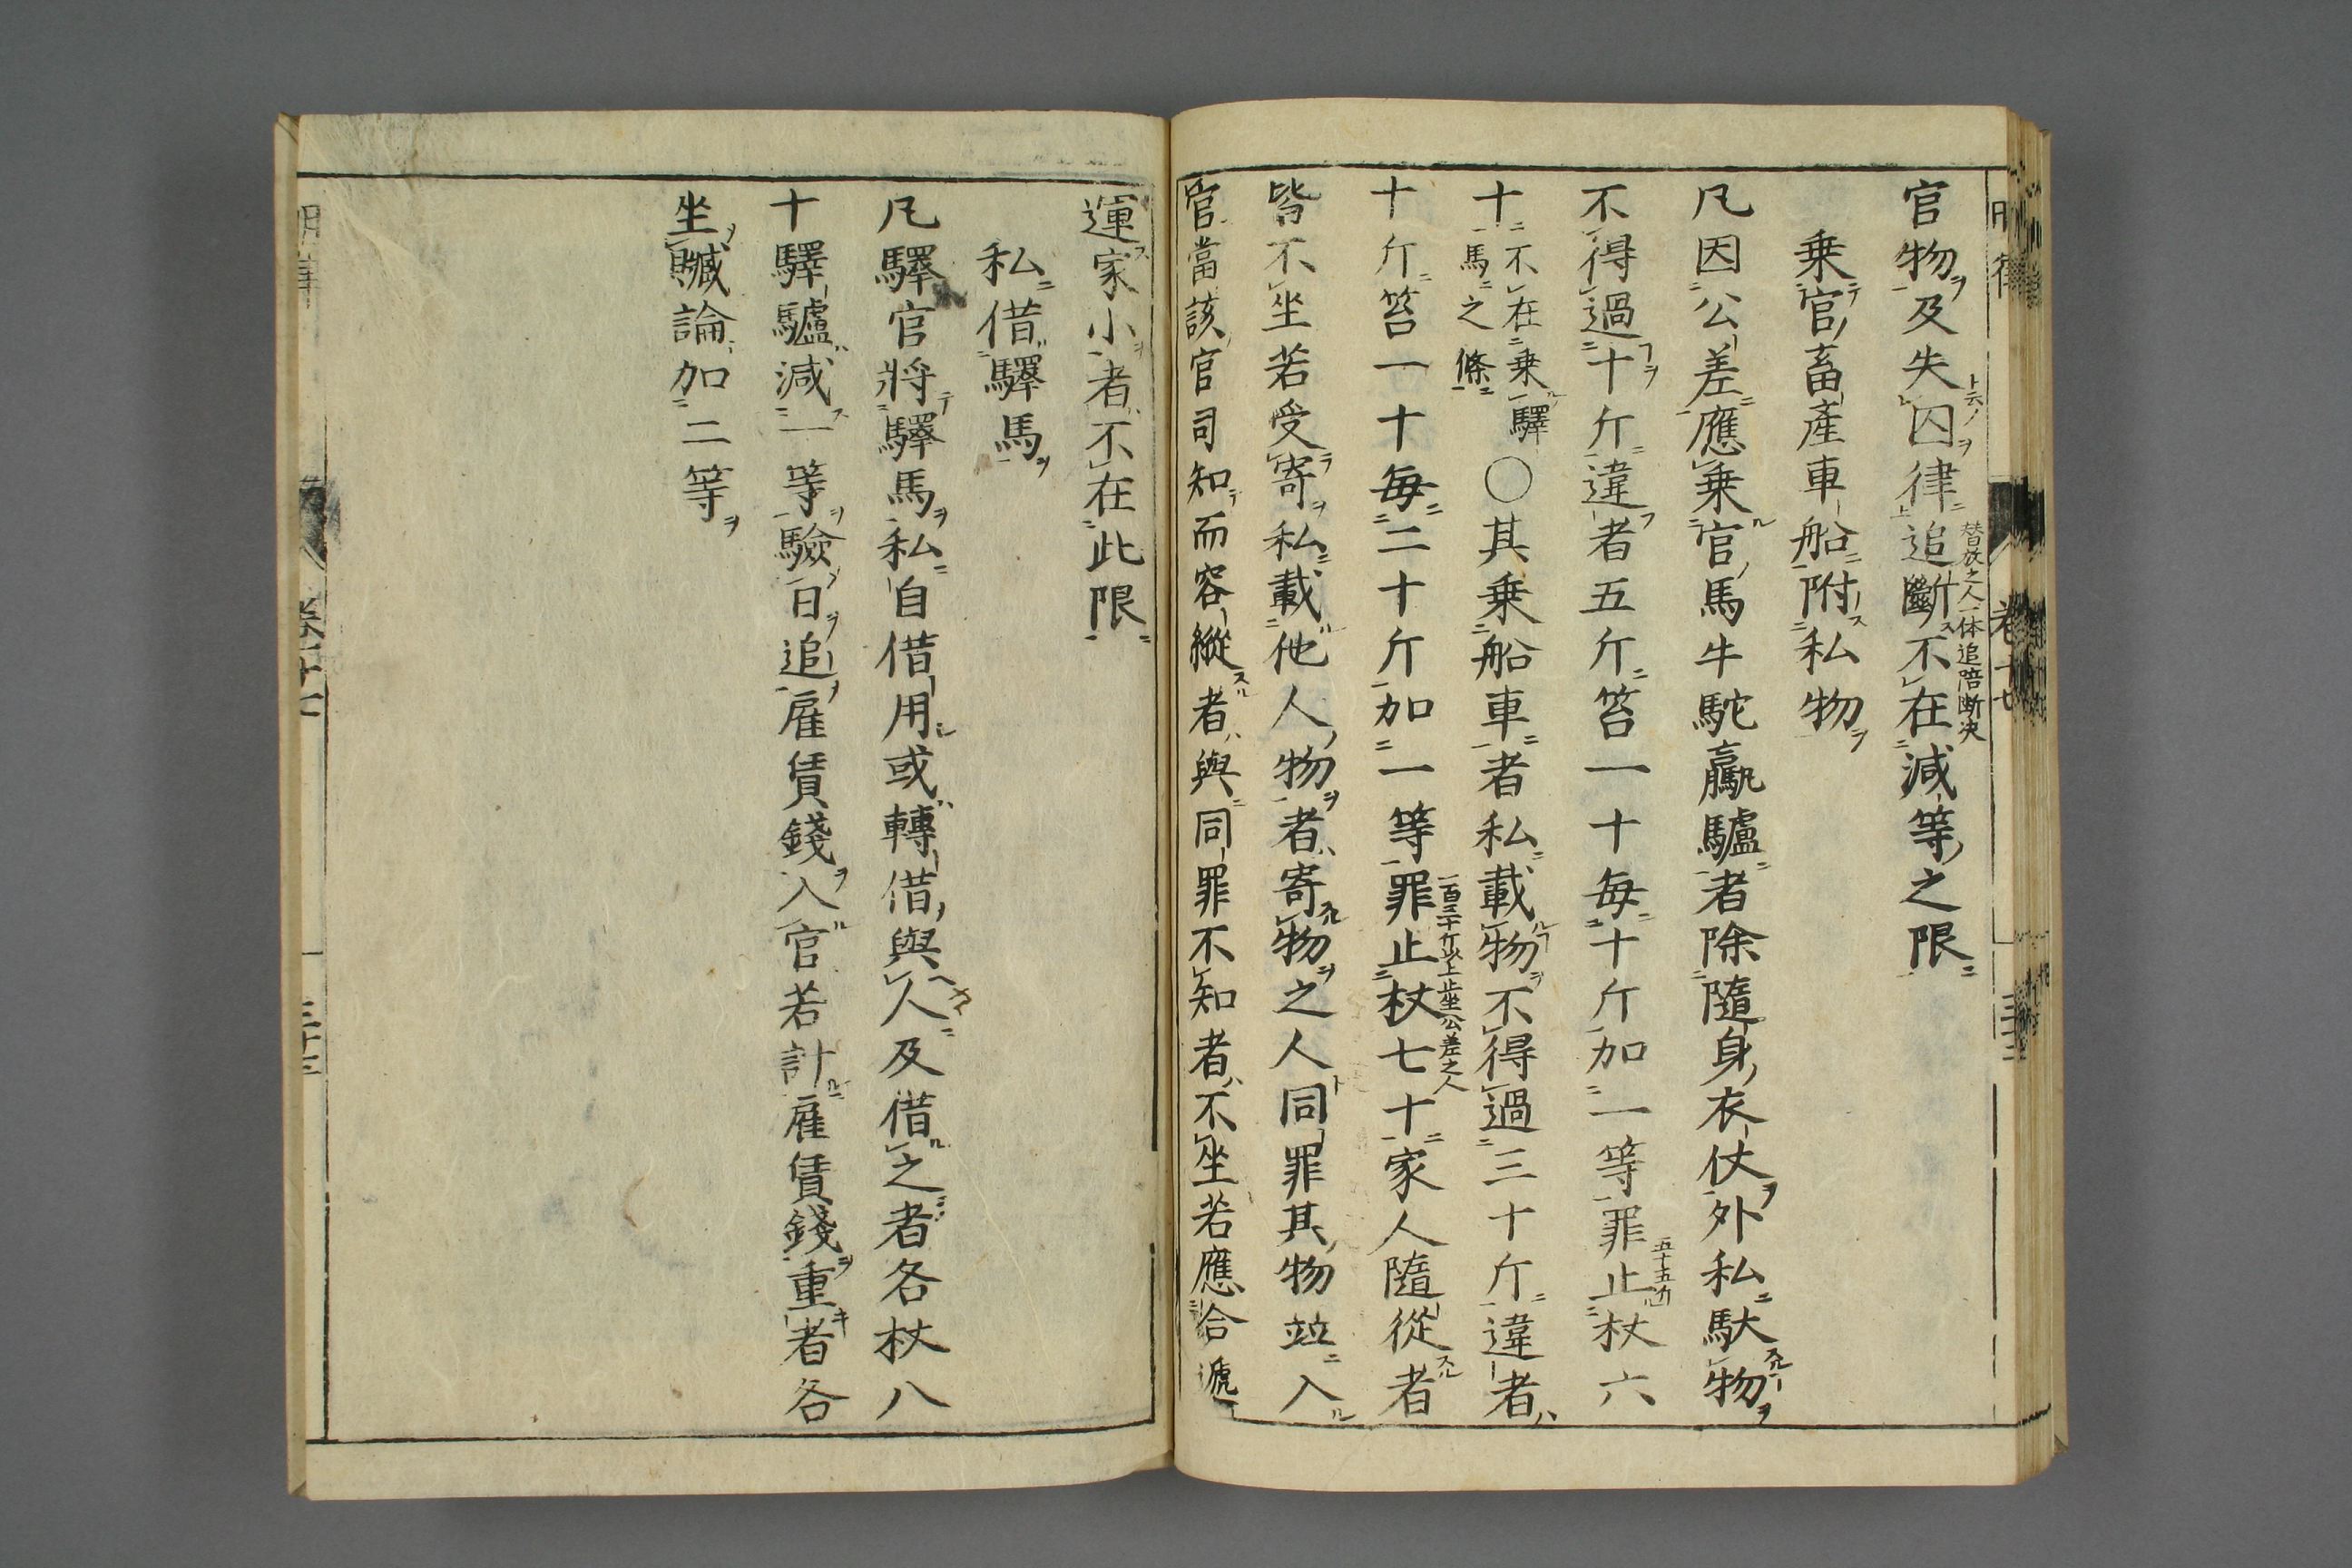 官物及失囚律追斷不在減等之限
替放之人一体追陪断决
乗官畜產車船附私物
凡因公差應乗官馬牛駝驘驢者除隨身衣仗外私馱物
不得過十斤違者五斤笞一十每十斤加一等罪止杖六
十不在乗驛馬之條○其乗船車者私載物不得過三十斤違者
一百三十斤以上止坐公差之人
十斤笞一十每二十斤加一等罪止杖七十家人隨從者
皆不坐若受寄私載他人物者寄物之人同罪其物竝入
官當該官司知而容縱者與同罪不知者不坐若應合遞
運家小者不在此限
私借驛馬
凡驛官將驛馬私自借用或轉借與人及借之者各杖八
十驛驢減一等驗日追雇賃錢入官若計雇賃錢重者各
坐贓論加二等